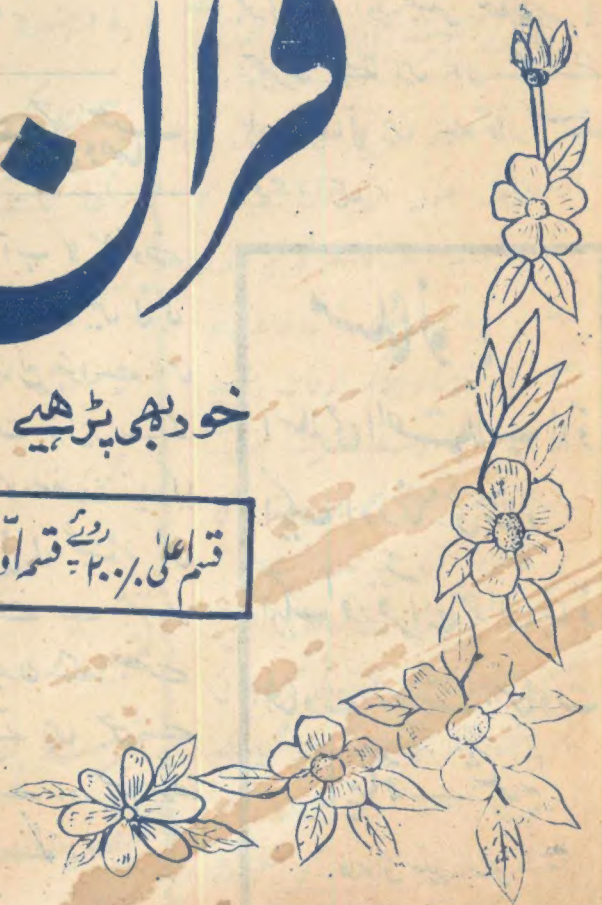 قرآن
خود بھی پڑھیے
قسم اعلیٰ ۲۰۰/۰ روپے قسم اوّ